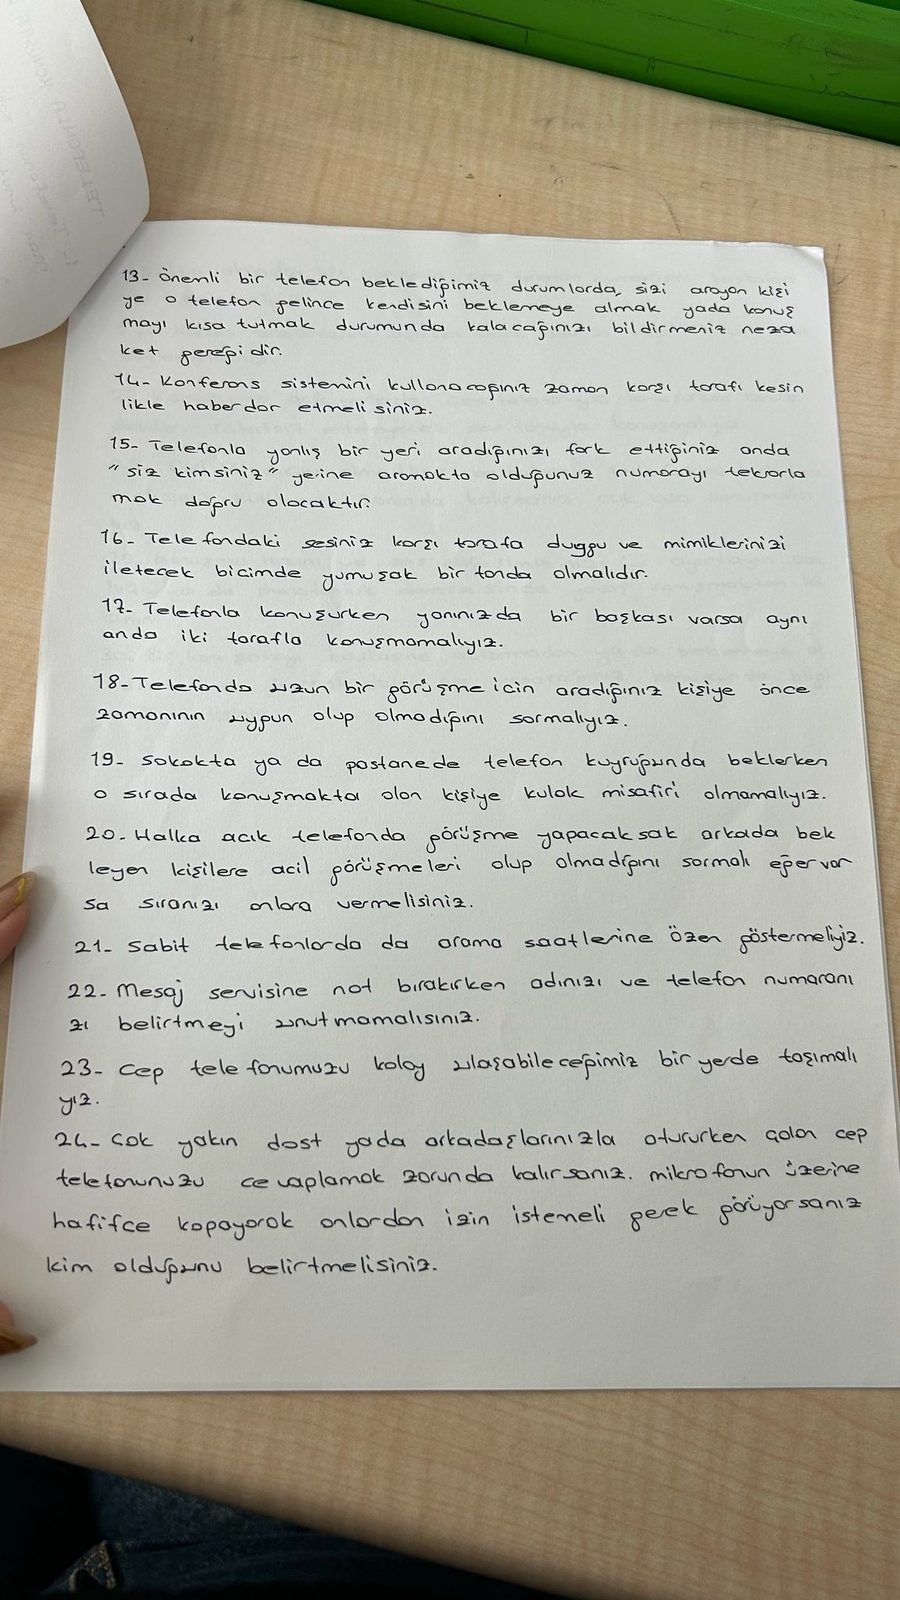 13- Önemli bir telefon beklediğimiz durumlarda, sizi arayan kişi
ye o telefon gelince kendisini beklemeye almak yada konuş
mayı kısa tutmak durumunda kalacağınızı bildirmeniz neza
ket gereğidir.
14- Konferans sistemini kullanacağınız zaman karşı tarafı kesin
likle haberdar etmelisiniz.
15- Telefonla yanlış bir yeri aradığınızı fark ettiğiniz anda
"siz kimsiniz" yerine aramakta olduğunuz numarayı tekrarla
mak doğru olacaktır.
16- Telefondaki sesiniz karşı tarafa duygu ve mimiklerinizi
iletecek bicimde yumuşak bir tonda olmalıdır.
17- Telefonla konuşurken yanınızda bir başkası varsa aynı
anda iki tarafla konuşmamalıyız.
18- Telefonda uzun bir görüşme icin aradığınız kişiye önce
zamanının uygun olup olmadığını sormalıyız.
19- Sokakta ya da postanede telefon kuyruğunda beklerken
o sırada konuşmakta olan kişiye kulak misafiri olmamalıyız.
20- Halka acık telefonda görüşme yapacaksak arkada bek
leyen kişilere acil görüşmeleri olup olmadığını sormalı eğer var
sa sıranızı onlara vermelisiniz.
21- Sabit telefonlarda da arama saatlerine özen göstermeliyiz.
22- Mesaj servisine not bırakırken adınızı ve telefon numaranı
zı belirtmeyi unutmamalısınız.
23- Cep telefonumuzu kolay ulaşabileceğimiz bir yerde taşımalı
yız.
24- Cok yakın dost yada arkadaşlarınızla otururken çalan cep
telefonunuzu cevaplamak zorunda kalırsanız. mikrofonun üzerine
hafifce kapayarak onlardan izin istemeli gerek görüyorsanız
kim olduğunu belirtmelisiniz.